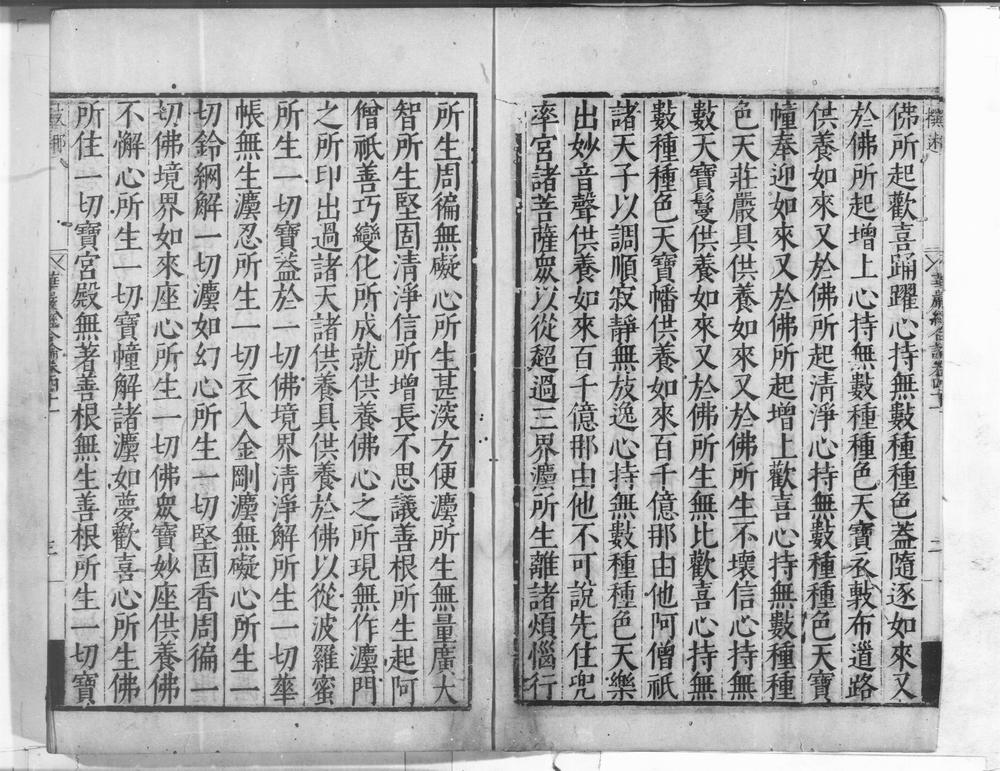 佛所起歡喜踊躍心持無數種種色蓋隨逐如來又
於佛所起增上心持無數種種色天寶衣敷布道路
供養如來又於佛所起清淨心持無數種種色天寶
幢奉迎如來又於佛所起增上歡喜心持無數種種
色天莊嚴具供養如來又於佛所生不壞信心持無
數天寶鬘供養如來又於佛所生無比歡喜心持無
數種種色天寶幡供養如來百千億那由他阿僧祇
諸天子以調順寂靜無放逸心持無數種種色天樂
出妙音聲供養如來百千億那由他不可說先住兜
率宮諸菩薩眾以從超過三界灋所生離諸煩惱行
華嚴經合論卷四十二
二
所生周徧無礙心所生甚深方便灋所生無量廣大
智所生堅固清淨信所增長不思議善根所生起阿
僧祇善巧變化所成就供養佛心之所現無作灋門
之所印出過諸天諸供養具供養於佛以從波羅蜜
所生一切寶蓋於一切佛境界清淨解所生一切華
帳無生灋忍所生一切衣入金剛灋無礙心所生一
切鈴網解一切灋如幻心所生一切堅固香周徧一
切佛境界如來座心所生一切佛眾寶妙座供養佛
不懈心所生一切寶幢解諸灋如夢歡喜心所生佛
所住一切寶宮殿無著善根無生善根所生一切寶
華嚴經合論卷四十二
三